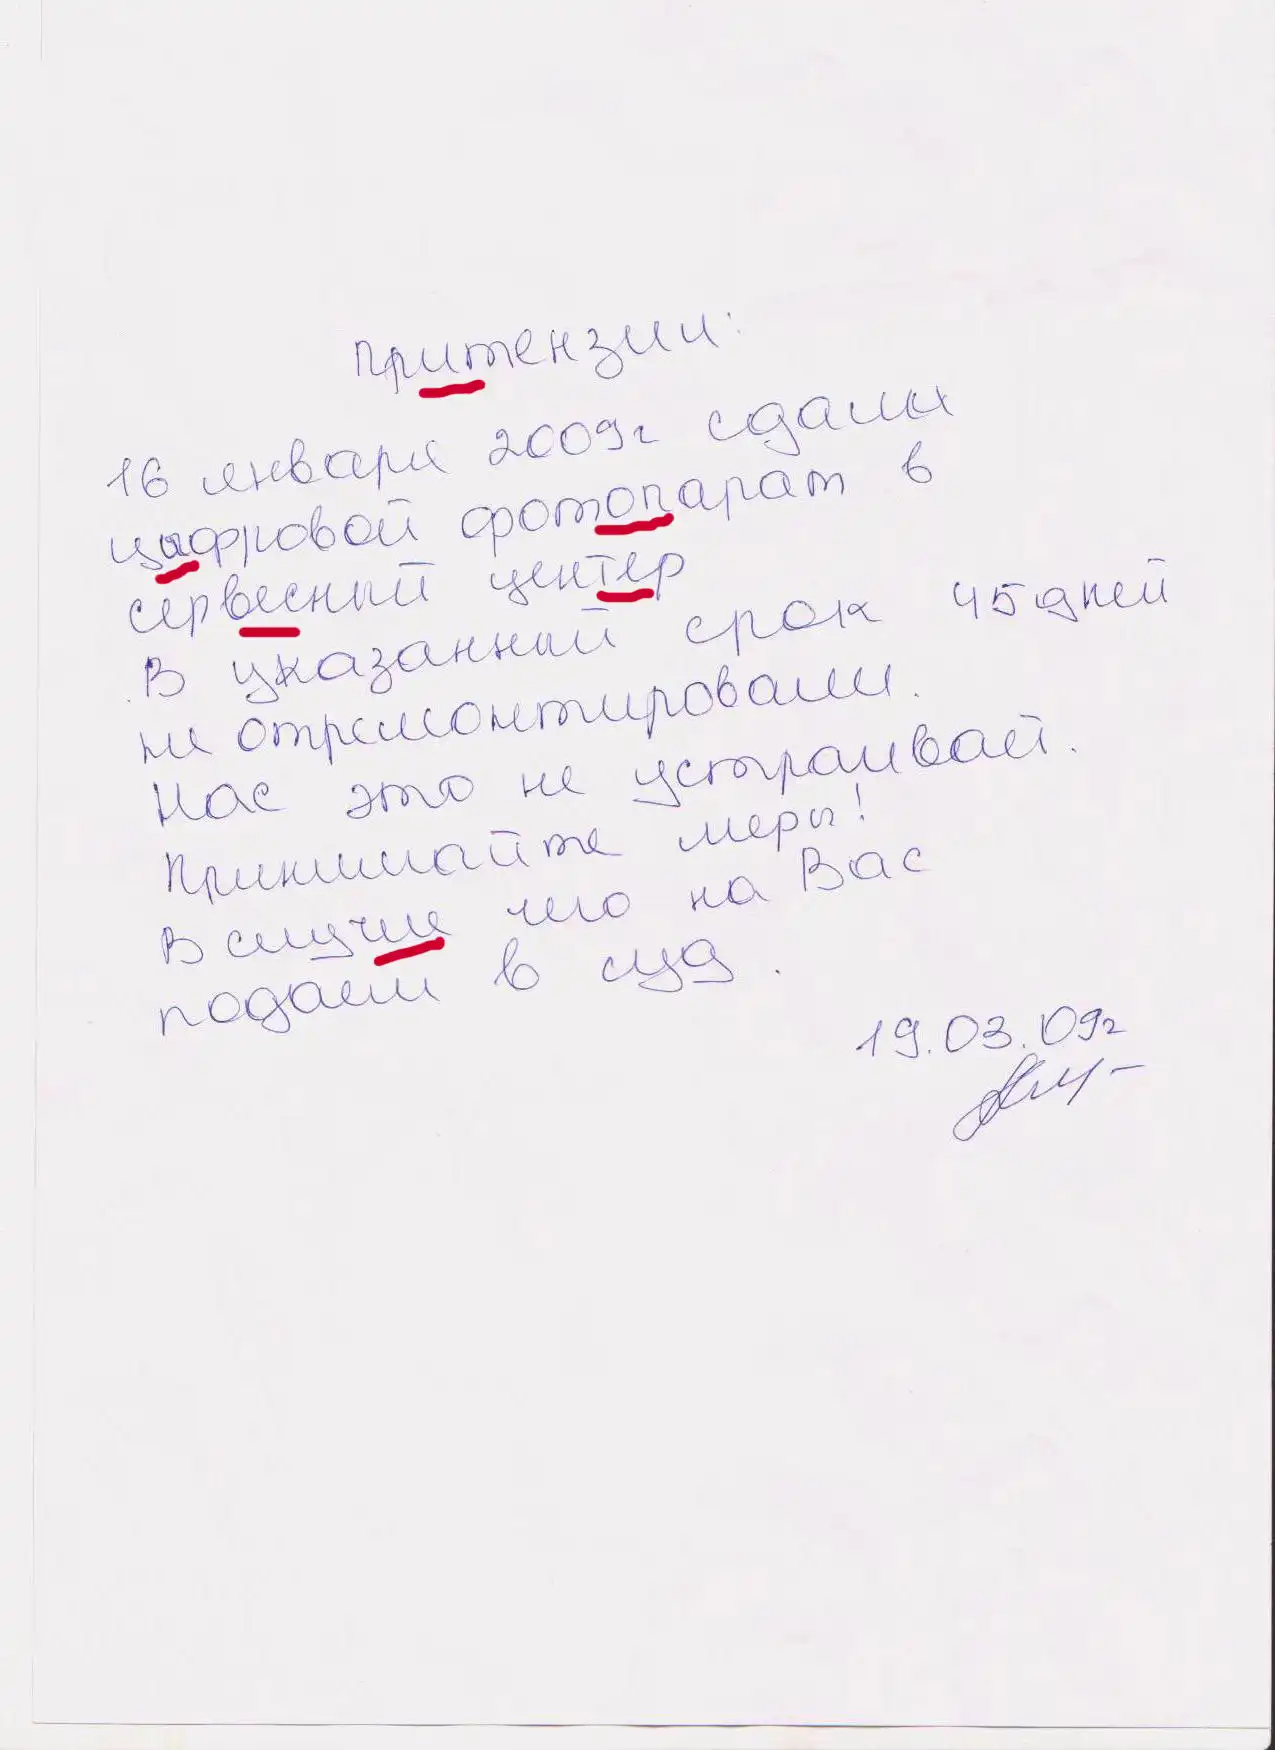 Притензии:
16 января 2009г сдали
цыфровой фотопарат в
сервесный центер
В указанный срок 45 дней
не отремонтировали.
Нас это не устраивает.
Принимайте меры!
В случие чего на Вас
подаем в суд.
19.03.09г